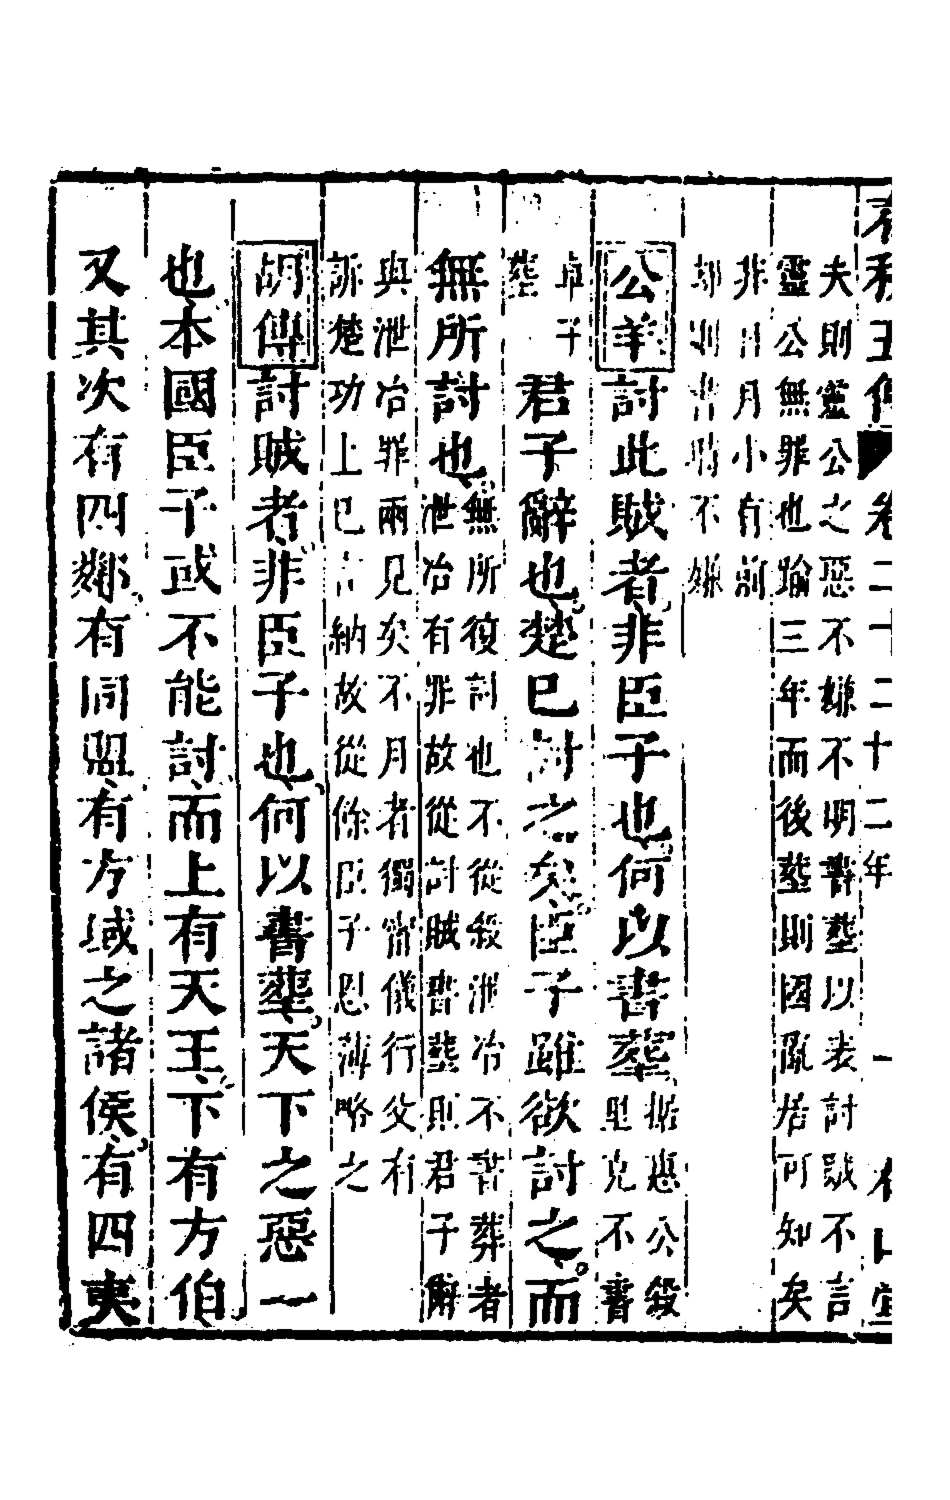 五傳卷二十二十二年 一
夫則靈公之惡不嫌不明書葬以表討賊不言
靈公無罪也踰三年而後葬則國亂居可知矣
非日月小有前
卻則書時不嫌
公羊討此賊者非臣子也何以書葬
據惠公殺
里克不書
卓子
葬
君子辭也楚已討之矣臣子雖欲討之而
無所討也
無所復討也不從殺泄冶不書葬者
泄冶有罪故從討賊書葬則君子辭
與泄冶罪兩見矣不月者獨甯儀行父有
訴楚功上已言納故從餘臣子恩薄略之
胡傳討賊者非臣子也何以書葬天下之惡一
也本國臣子或不能討而上有天王下有方伯
又其次有四鄰有同盟有方域之諸侯有四夷